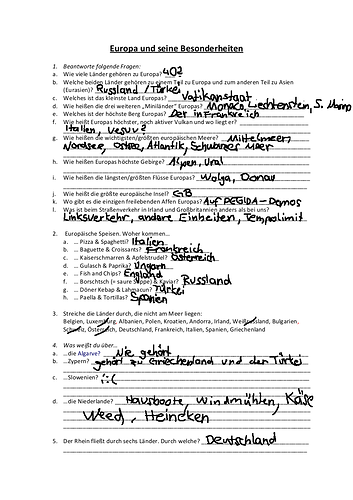 Europa und seine Besonderheiten
1. Beantworte folgende Fragen:
a. Wie viele Länder gehören zu Europa? 40?
b. Welche beiden Länder gehören zu einem Teil zu Europa und zum anderen Teil zu Asien
(Eurasien)? Russland / Türkei
c. Welches ist das kleinste Land Europas? Vatikanstaat
d. Wie heißen die drei weiteren „Miniländer" Europas? Monaco, Liechtenstein, S. Marino
e. Welches ist der höchste Berg Europas? Der in Frankreich
f. Wie heißt Europas höchster, noch aktiver Vulkan und wo liegt er?
Italien, Vesuv?
g. Wie heißen die wichtigsten/größten europäischen Meere? Mittelmeer,
Nordsee, Ostsee, Atlantik, Schwarzes Meer
h. Wie heißen Europas höchste Gebirge? Alpen, Ural
i. Wie heißen die längsten/größten Flüsse Europas? Wolga, Donau
j. Wie heißt die größte europäische Insel? GB
k. Wo gibt es die einzigen freilebenden Affen Europas? Auf PEGIDA-Demos
l. Was ist beim Straßenverkehr in Irland und Großbritannien anders als bei uns?
Linksverkehr, andere Einheiten, Tempolimit
2. Europäische Speisen. Woher kommen...
a. ... Pizza & Spaghetti? Italien
b. ... Baguette & Croissants? Frankreich
c. ... Kaiserschmarren & Apfelstrudel? Österreich
d. ... Gulasch & Paprika? Ungarn
e. ... Fish and Chips? England
f. ... Borschtsch (= saure Suppe) & Kaviar? Russland
g. ... Döner Kebap & Lahmacun? Türkei
h. ... Paella & Tortillas? Spanien
3. Streiche die Länder durch, die nicht am Meer liegen:
Belgien, Luxemburg, Albanien, Polen, Kroatien, Andorra, Irland, Weißrussland, Bulgarien,
Schweiz, Österreich, Deutschland, Frankreich, Italien, Spanien, Griechenland
4. Was weißt du über...
a. ...die Algarve? Nie gehört
b. ...Zypern? gehört zu Griechenland und der Türkei
c. ...Slowenien? :(
d. ...die Niederlande? Hausboote, Windmühlen, Käse
Weed, Heineken
5. Der Rhein fließt durch sechs Länder. Durch welche? Deutschland